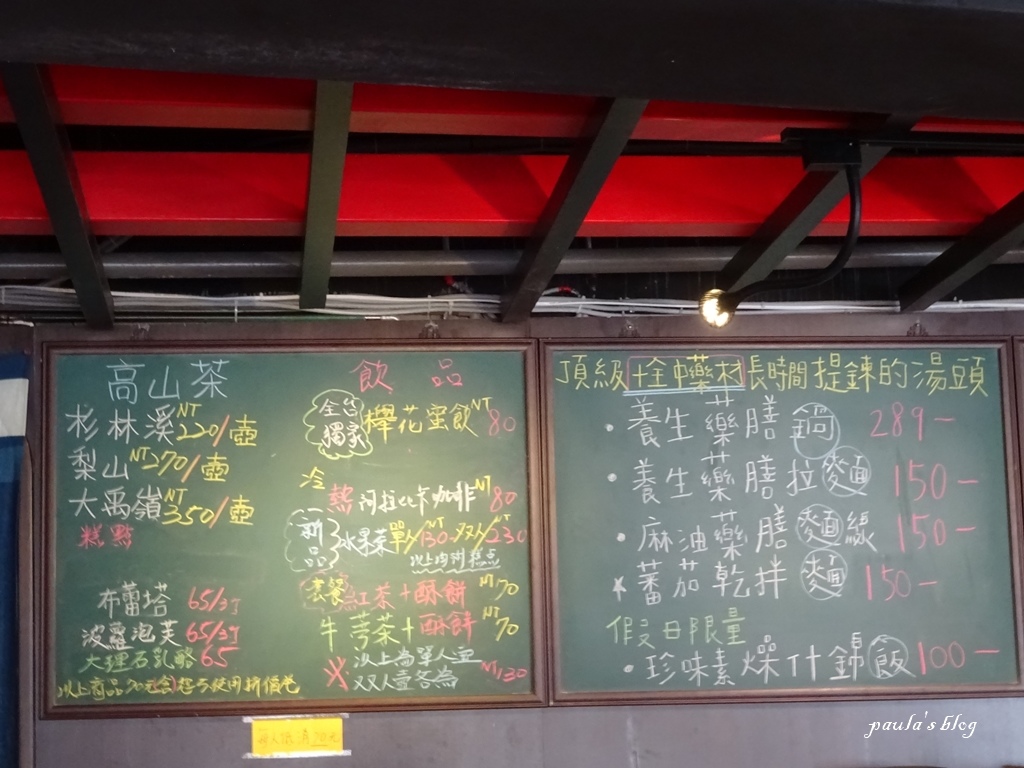 高山茶
杉林溪NT220/壺
梨山NT270/壺
大禹嶺NT350/壺
糕點
布蕾塔 65/3T
波蘿泡芙 65/3T
大理石乳酪 65
以上商品
飲品
全台獨家 櫸花蜜飲NT80
冷
熱 阿拉比卡咖啡NT80
新品 水果茶 單/NT130 双/NT230
以上均附糕点
套餐 紅茶+酥餅NT70
牛蒡茶+酥餅NT70
※以上為單人壺
双人壺各為NT130
頂級十全中藥材長時間提鍊的湯頭
•養生藥膳鍋 289-
•養生藥膳拉麵 150-
•麻油藥膳麵線 150-
★蕃茄乾拌麵 150-
假日限量
•珍味素燥什錦飯 100-
每人低消70元
paula's blog